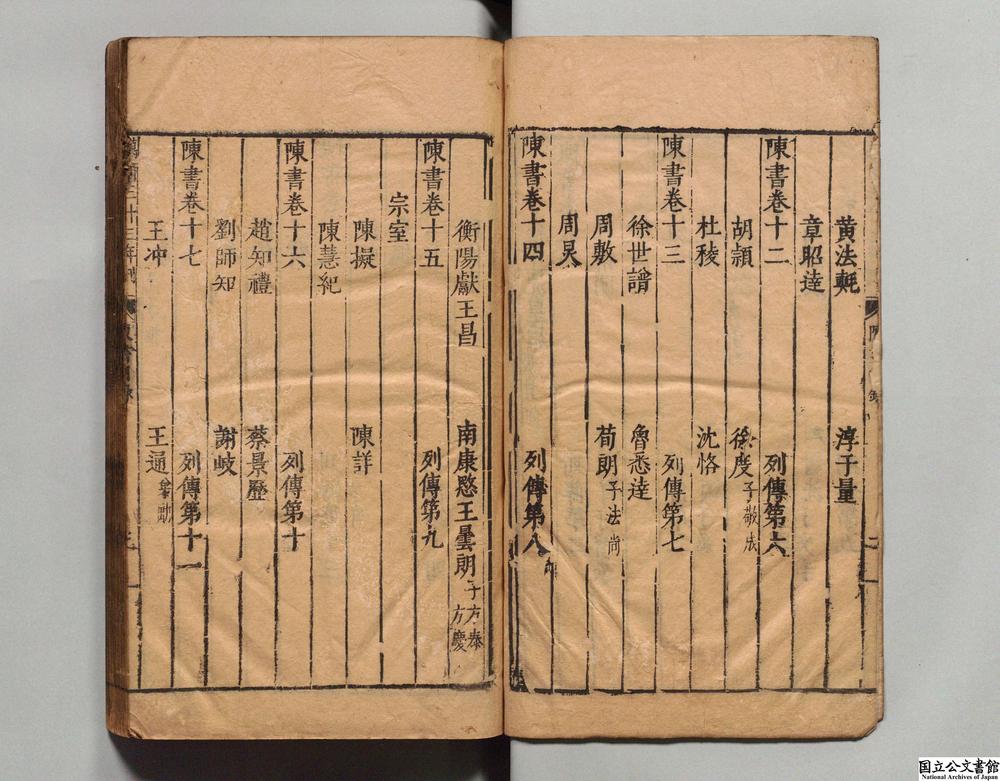 黄法𣰰　淳于量
章昭達
陳書卷十二　列傳第六
胡頴　徐度子敬成
杜稜　沈恪
陳書卷十三　列傳第七
徐世譜　魯悉達
周敷　荀朗子法尚
周炅
陳書卷十四　列傳第八
衡陽獻王昌　南康愍王曇朗子方泰　方慶
陳書卷十五　列傳第九
宗室
陳擬　陳詳
陳慧紀
陳書卷十六　列傳第十
趙知禮　蔡景歷
劉師知　謝岐
陳書卷十七　列傳第十一
王冲　王通弟勱
国立公文書館
National Archives of Japan